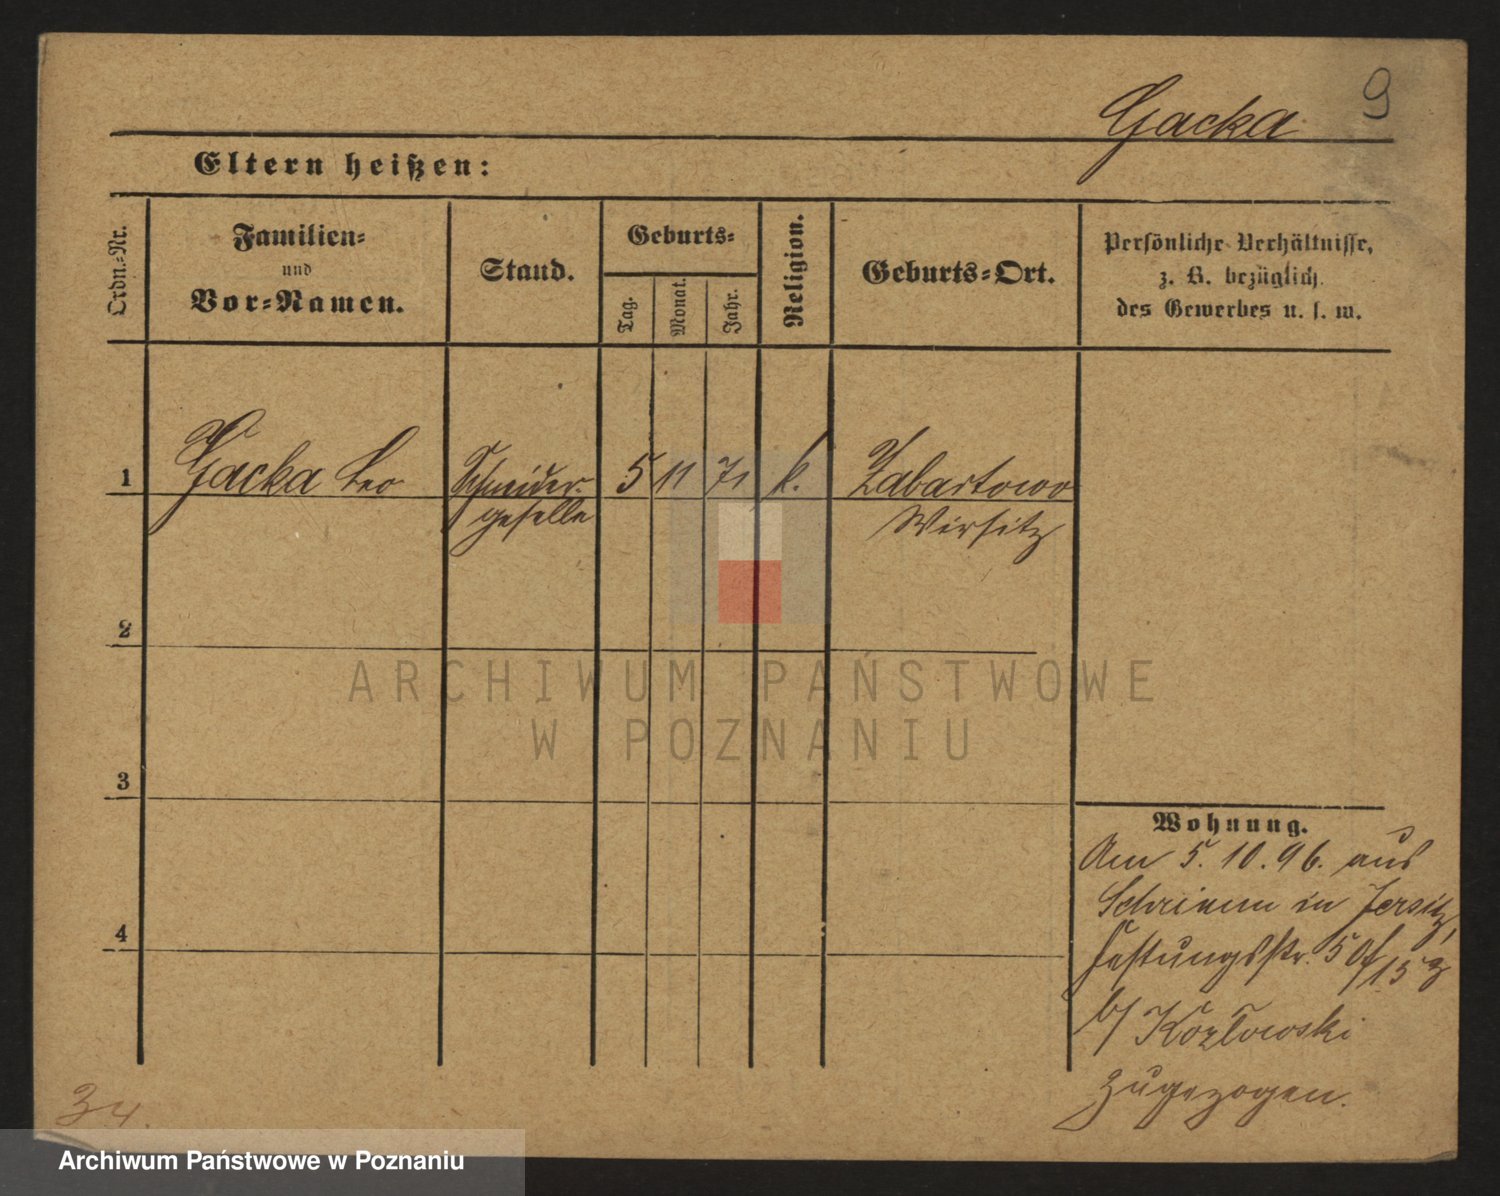 9
Gacka
Eltern heißen:
Ordn.-Nr.
Familien-
und
Vor-Namen.
Stand.
Geburts-
Tag.
Monat.
Jahr.
Religion.
Geburts-Ort.
Persönliche Verhältnisse,
z. B. bezüglich
des Gewerbes u. s. w.
1 Gacka Leo Schneider- 5 11 71 k. Zabartowo
geselle Wirsitz
2
ARCHIWUM PAŃSTWOWE
W POZNANIU
3
Wohnung.
Am 5.10.96. aus
Schrimm in Jersitz,
4
Festungsstr. 5
b/ Kozlowski
zugezogen.
34.
Archiwum Państwowe w Poznaniu